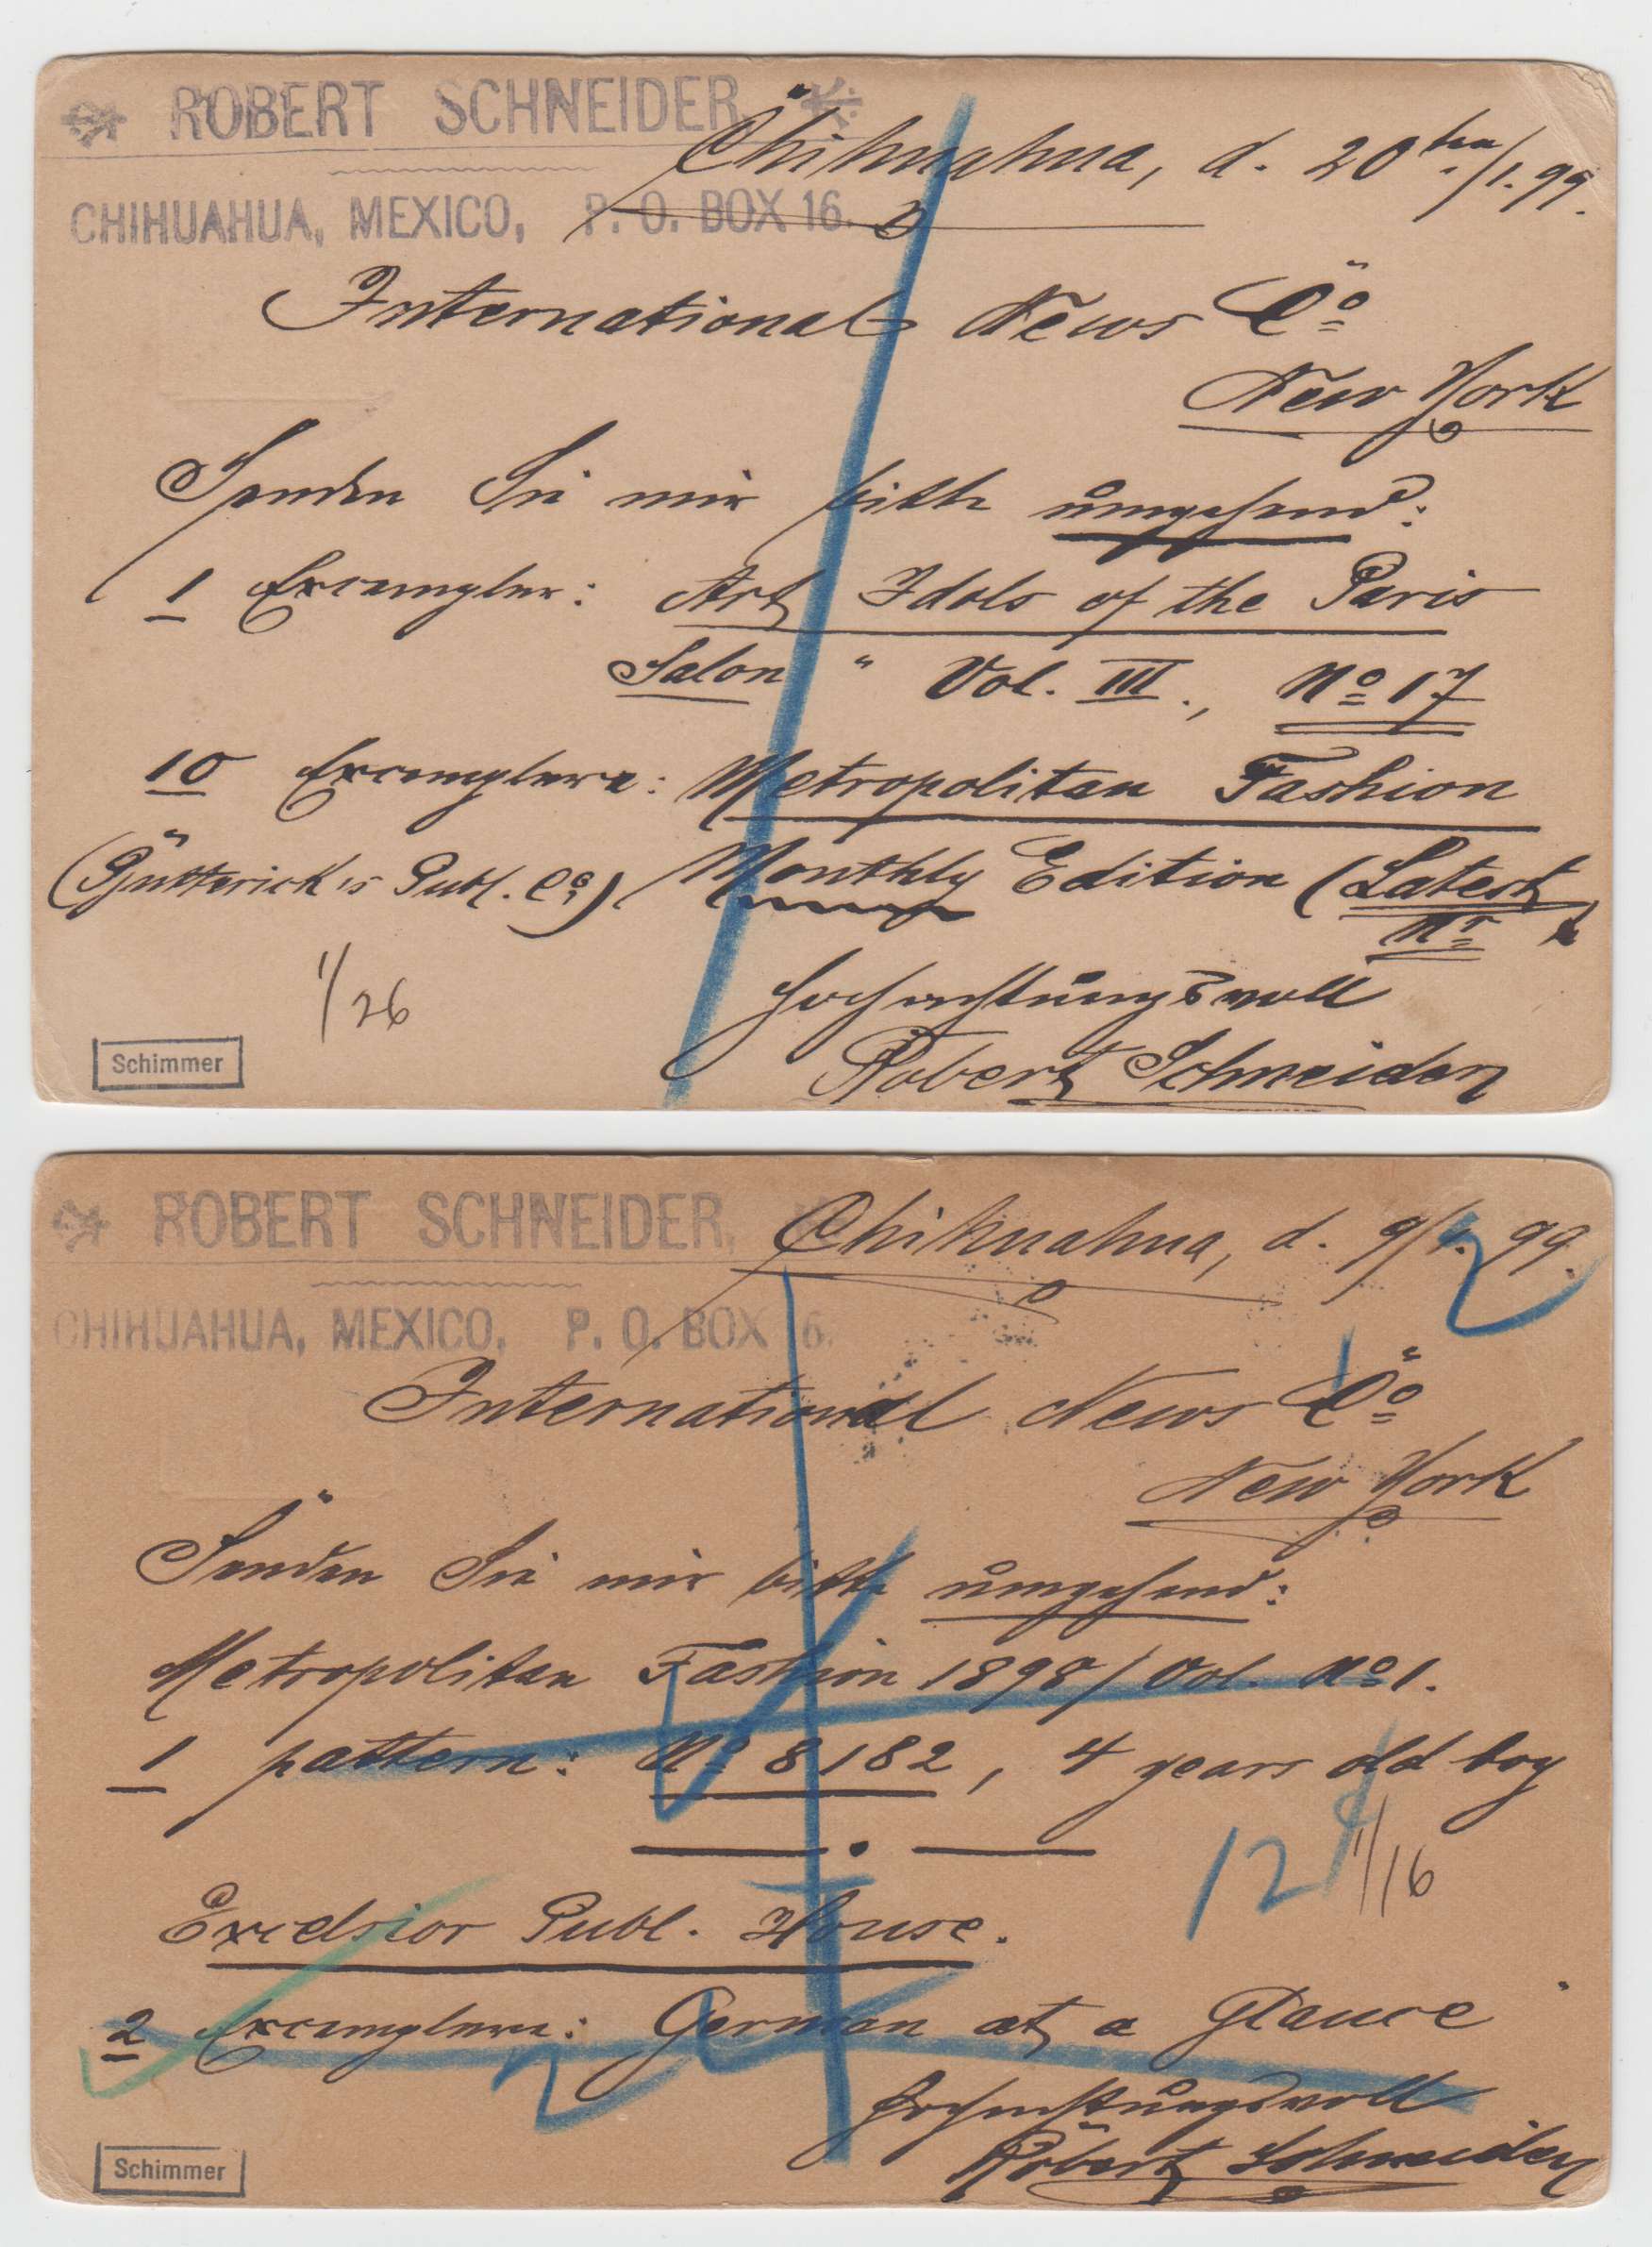 ROBERT SCHNEIDER
CHIHUAHUA, MEXICO, P. O. BOX 16.
Chihuahua, d. 20ten/1. 99.
International News Co
New York
Senden Sie mir bitte umgehend:
1 Exemplar: Art Idols of the Paris
Salon " Vol. III., No 17
10 Exemplare: Metropolitan Fashion
(Butterick's Publ. Co,) Monthly Edition (Latest
Nr
Hochachtungsvoll
Robert Schneider
1/26
Schimmer
ROBERT SCHNEIDER,
CHIHUAHUA, MEXICO, P. O. BOX 6.
Chihuahua, d. 9/ 99.
International News Co
New York
Senden Sie mir bitte umgehend:
Metropolitan Fashion 1898/ Vol. No 1.
1 pattern: No 8182, 4 years old boy
12
11/16
Excelsior Publ. House.
2 Exemplare: German at a Glance"
Hochachtungsvoll
Robert Schneider
Schimmer